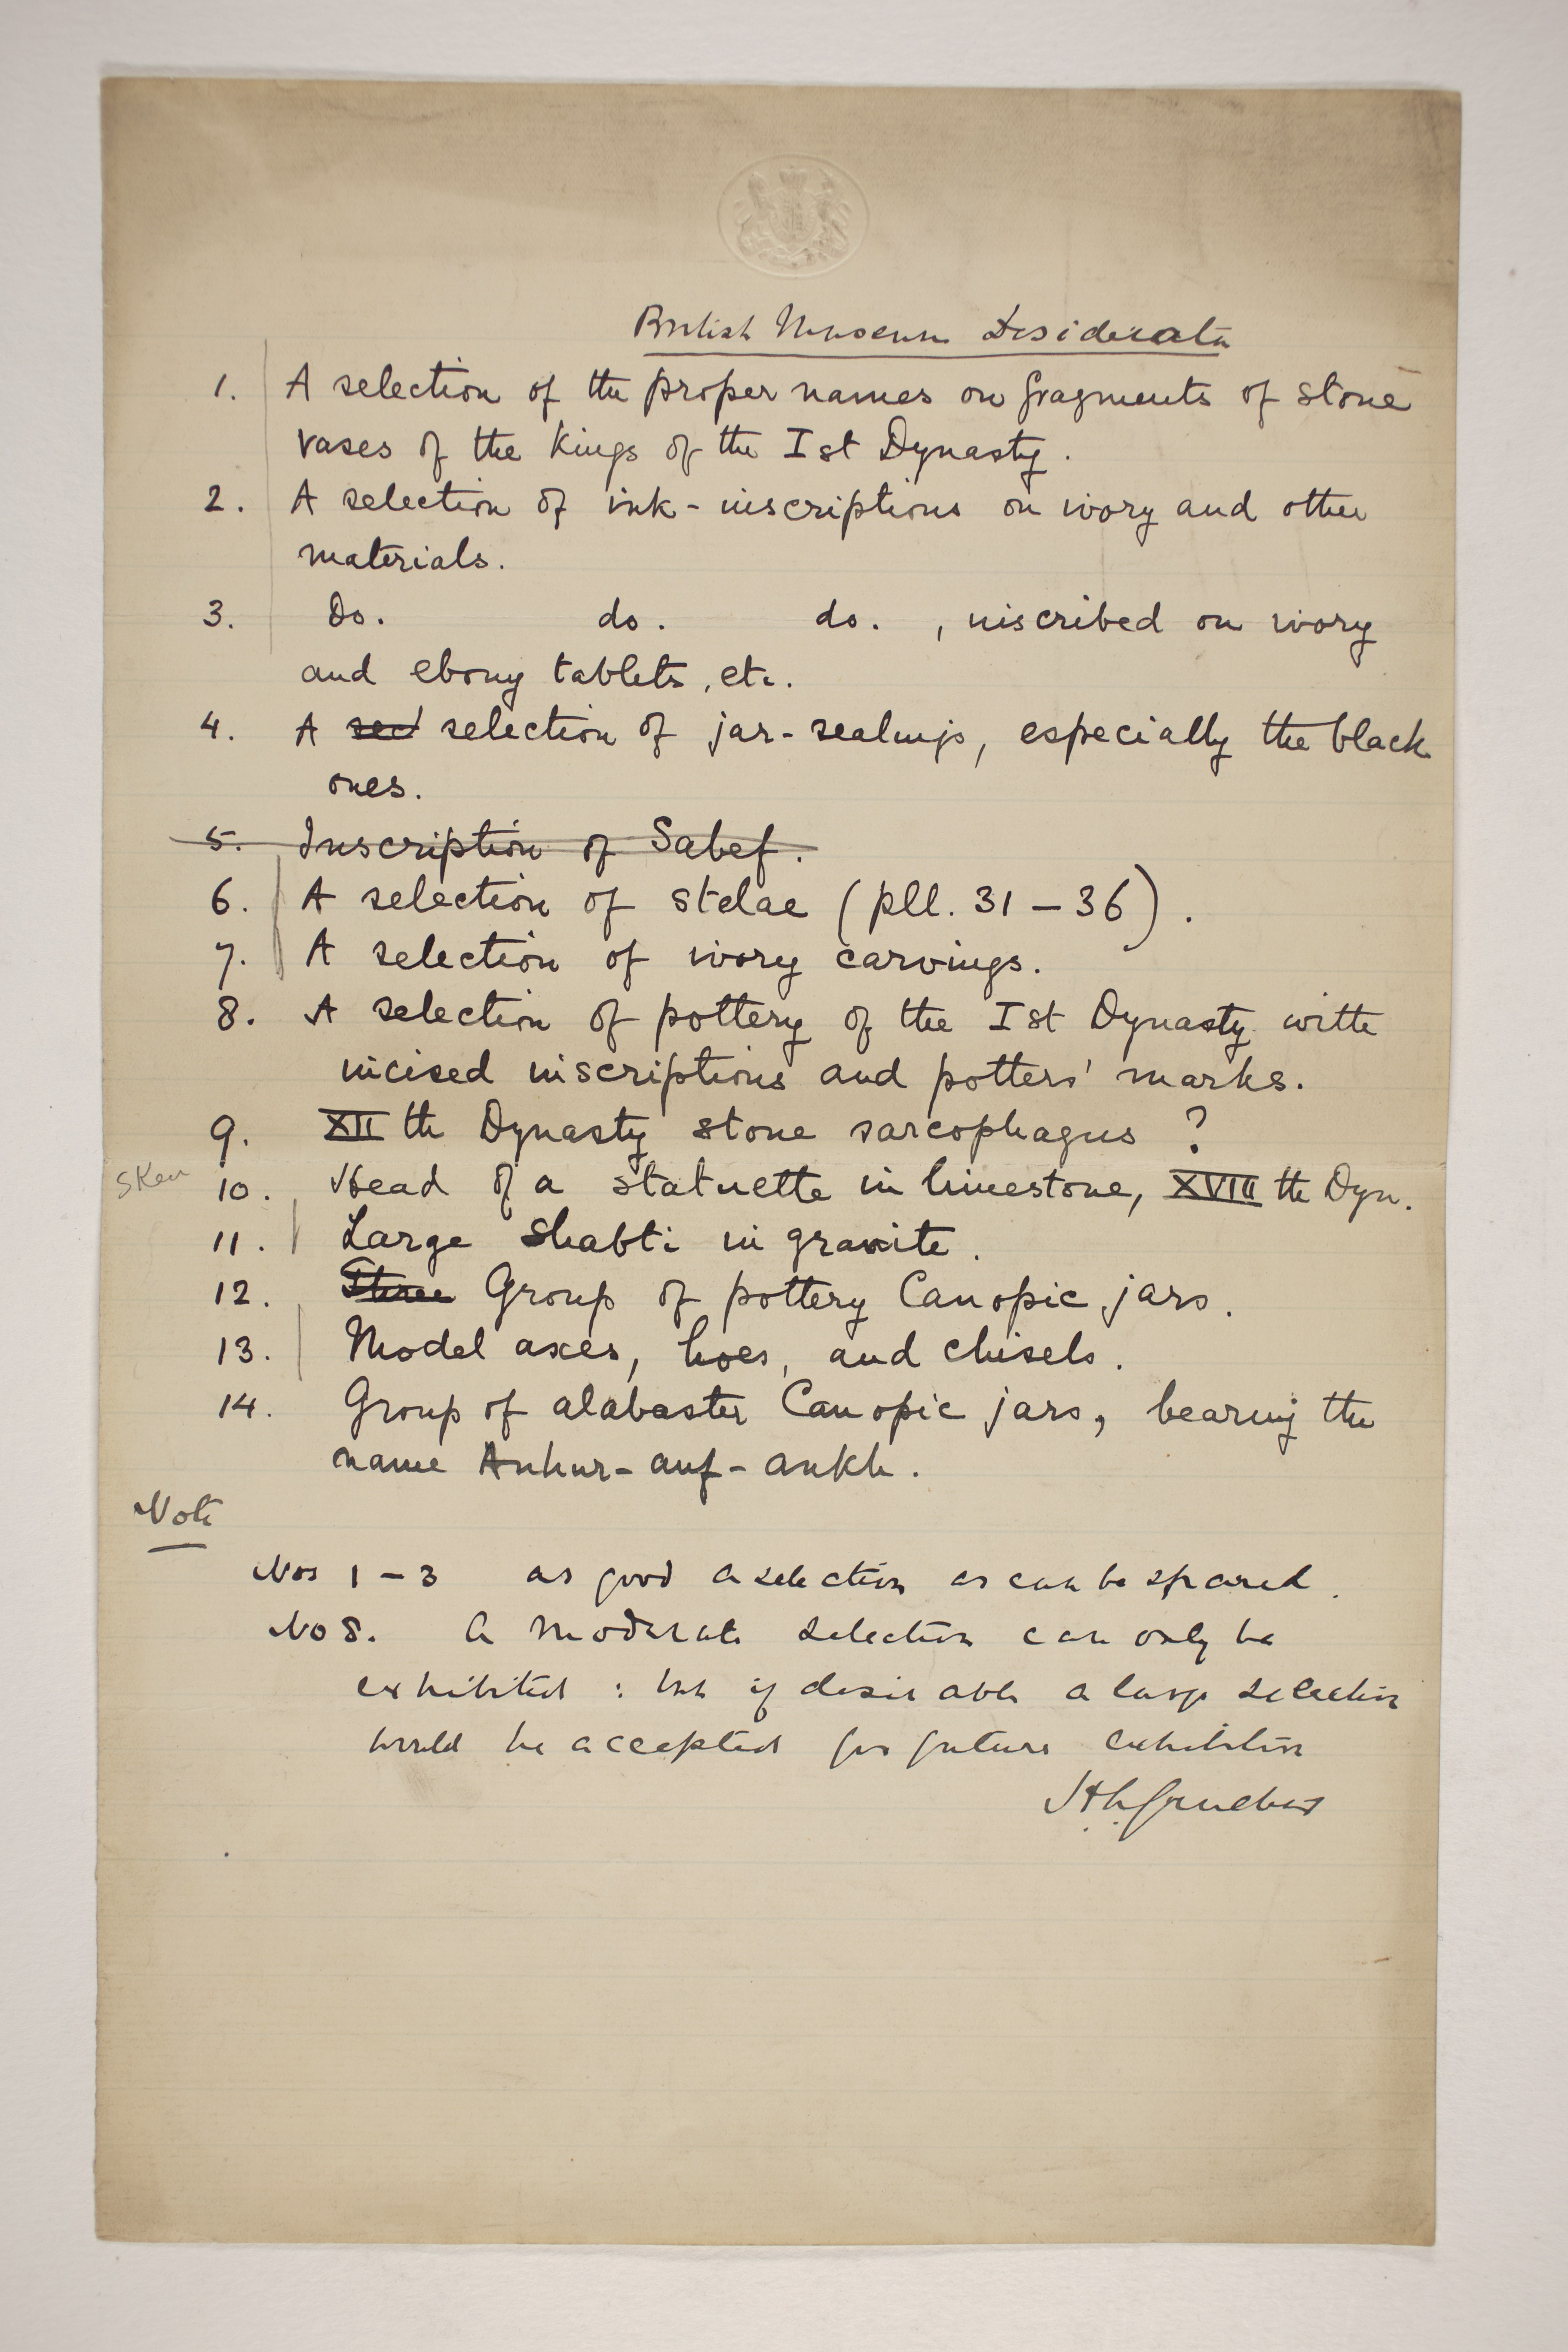 British Museum Desiderata
1. A selection of the proper names on fragments of stone
vases of the Kings of the Ist Dynasty.
2. A selection of ink-inscriptions on ivory and other
materials.
3. Do. do. do. , inscribed on ivory
and ebony tablets, etc.
4. A sel selection of jar-sealings, especially the black
ones.
5. Inscription of Sabef.
6. A selection of stelae (pll. 31-36).
7. A selection of ivory carvings.
8. A selection of pottery of the Ist Dynasty with
incised inscriptions and potters' marks.
9. XIIth Dynasty stone sarcophagus ?
10. Head of a statuette in limestone, XVIIIth Dyn.
11. Large Shabti in granite.
12. Three Group of pottery Canopic jars.
13. Model axes, hoes, and chisels.
14. Group of alabaster Canopic jars, bearing the
name Anhur-auf-ankh.
Note
Nos 1-3 as good a selection as can be spared.
No 8. A moderate selection can only be
exhibited : but if desirable a large selection
would be accepted for future exhibition